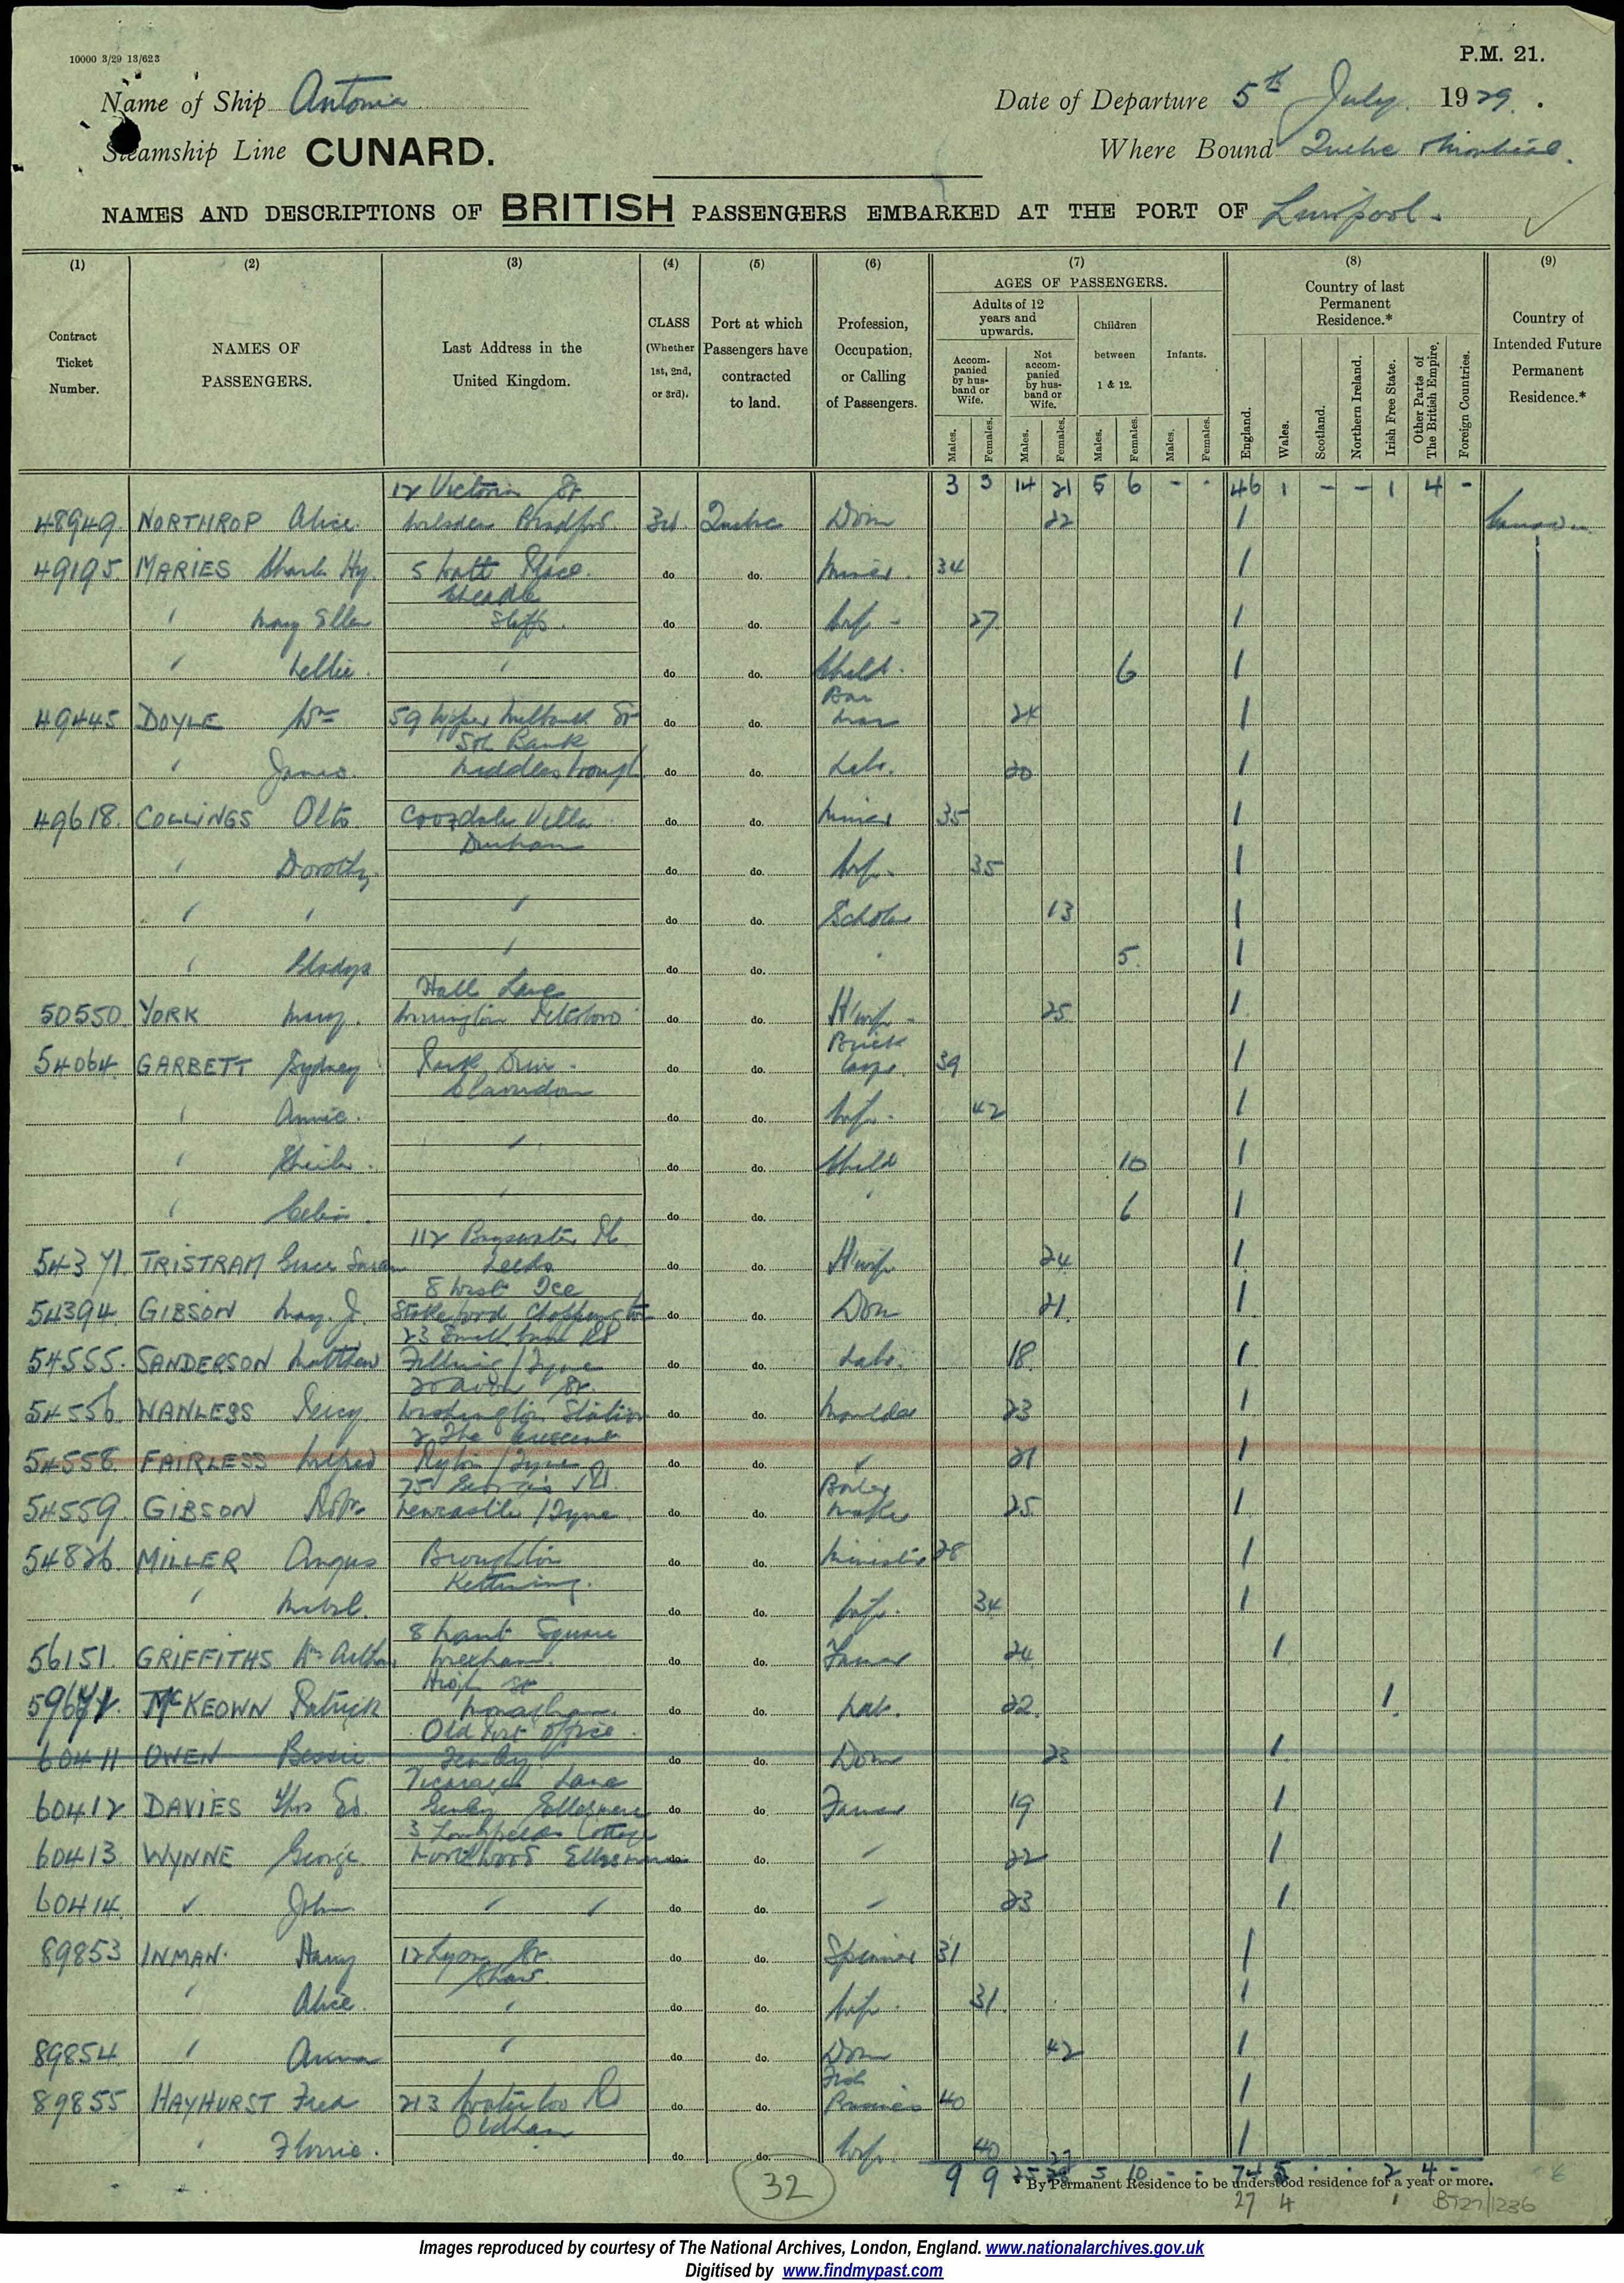 10000 3/29 13/623
P.M. 21.
Name of Ship Antonia
Date of Departure 5th July 1929.
Steamship Line CUNARD.
Where Bound Quebec Montreal.
NAMES AND DESCRIPTIONS OF BRITISH PASSENGERS EMBARKED AT THE PORT OF Liverpool.
(1) (2) (3) (4) (5) (6) (7) (8) (9)
Contract Ticket Number.
NAMES OF PASSENGERS.
Last Address in the United Kingdom.
CLASS (Whether 1st, 2nd, or 3rd).
Port at which Passengers have contracted to land.
Profession, Occupation, or Calling of Passengers.
AGES OF PASSENGERS.
Adults of 12 years and upwards.
Accompanied by husband or Wife.
Not accompanied by husband or Wife.
Children between 1 & 12.
Infants.
Males. Females. Males. Females. Males. Females. Males. Females.
Country of last Permanent Residence.*
England. Wales. Scotland. Northern Ireland. Irish Free State. Other Parts of The British Empire. Foreign Countries.
Country of Intended Future Permanent Residence.*
12 Victoria St 3 3 14 21 5 6 - - 46 1 - - 1 4 -
48949 NORTHROP Alice Wilsden Bradford. 3rd. Quebec Dom 22 1 Canada
49195. MARIES Charles Hy. 5 Watt Place. do do. Miner. 34 1
Cheadle
" Mary Ellen Staffs. do do. Wife - 27 1
" Nellie. " do do. Child. 6 1
Bar
49445 DOYLE Wm 59 Upper Milbank St do do. man 24 1
Sth Bank
" James. Middlesbrough do do. Lab. 20 1
49618. COLLINGS Otto Villa do do. Miner 35 1
Durham
" Dorothy. do do. Wife. 35 1
" " " do do. Scholar 13 1
" Gladys " do do. " 5. 1
Hall Lane
50550. YORK Mary. Werrington Peterboro do do. H'wife - 25 1.
Brick
54064. GARBETT Sydney Park Drive. do do. 39 1
" Annie. do do. Wife. 42 1
" Sheila. " do do. Child 10 1
" Celia. " do do. " 6 1
112 Bayswater Pl.
54371. TRISTRAM Grace Sarah Leeds do do. H'wife 24 1.
8 West Tce
54394. GIBSON May. J. Stakeford Choppington do do. Dom 21. 1
54555. SANDERSON Matthew Felling / Tyne do do. Lab. 18. 1
St.
54556. WANLESS Percy Washington Station do do. Moulder 23 1
2 The Crescent
54558. FAIRLESS Wilfred Ryton / Tyne do do. " 21 1
Boiler
54559. GIBSON Robt Newcastle / Tyne. do do. maker 25. 1
54826. MILLER Angus Broughton do do. Minister 28 1
Kettering.
" Mabel. do do. Wife. 34 1
8 Square
56151. GRIFFITHS Wm Arthur Wrexham. do do. Farmer 24 1
High St
McKEOWN Patrick Monaghan do do. Lab. 22. 1
Old Post Office
60411 OWEN Bessie do do. Dom 23 1
Vicarage Lane
60412 DAVIES Thos Ed. Ellesmere do do. Farmer 19 1
3 Cottage
60413. WYNNE George. Ellesmere do. " 22 1
60414. " John " " do do. " 23 1
89853 INMAN. Harry 12 Lyon St. do do. Spinner 31 1
Shaw.
" Alice. " do do. Wife. 31. 1
89854 " Anna " do do. Dom 42 1
Fish
89855 HAYHURST Fred 213 Waterloo Rd do do. 40 1
Oldham
" Florrie. do do. Wife. 40 1
9 9 25 5 10 - - 74 5 - - 2 4 -
27
32
* By Permanent Residence to be understood residence for a year or more.
27 4 1 BT27/1236
Images reproduced by courtesy of The National Archives, London, England. www.nationalarchives.gov.uk
Digitised by www.findmypast.com